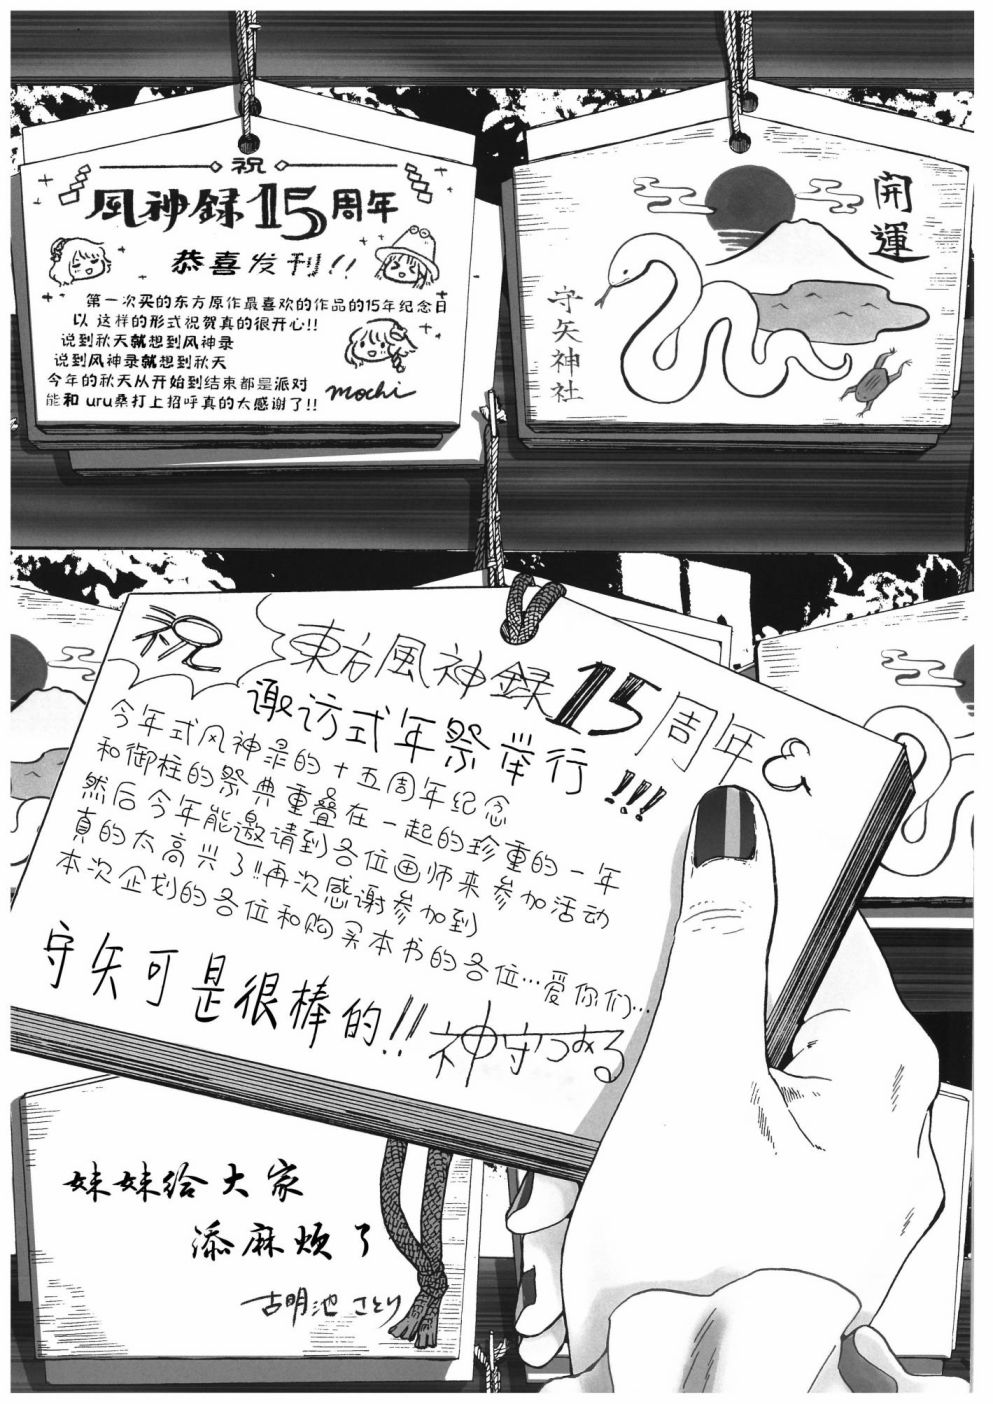 祝
風神録15周年
恭喜发刊!!
第一次买的东方原作最喜欢的作品的15年纪念日
以 这样的形式祝贺真的很开心!!
说到秋天就想到风神录
说到风神录就想到秋天
今年的秋天从开始到结束都是派对
能和 uru桑打上招呼真的太感谢了!!
mochi
開運
守矢神社
祝
東方風神録15周年&
诹访式年祭举行!!!
今年式风神录的十五周年纪念
和御柱的祭典重叠在一起的珍重的一年
然后今年能邀请到各位画师来参加活动
真的太高兴了!!再次感谢参加到
本次企划的各位和购买本书的各位…爱你们…
守矢可是很棒的!!
神守
妹妹给大家
添麻烦了
古明池 さとり